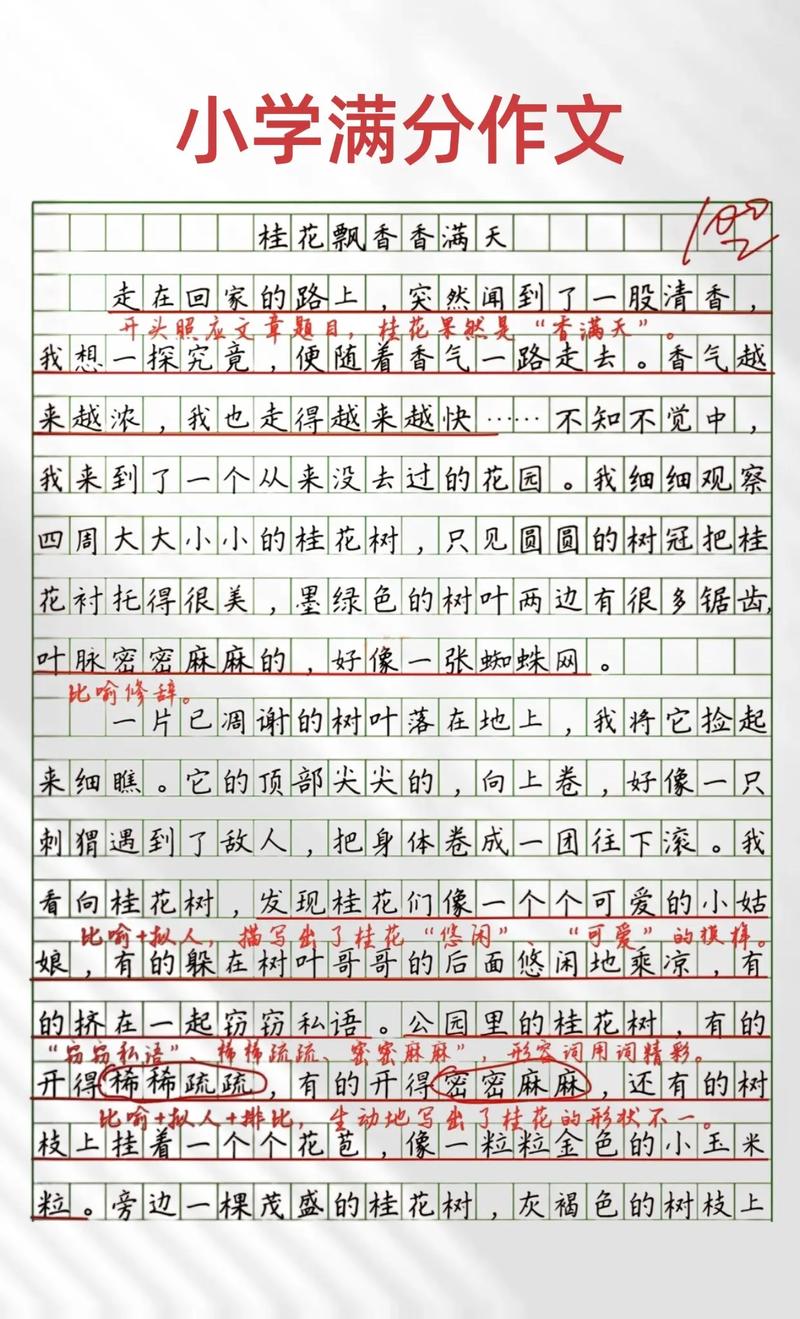 小学满分作文
桂花飘香香满天
100
走在回家的路上，突然闻到了一股清香，
开头照应文章题目，桂花果然是“香满天”。
我想一探究竟，便随着香气一路走去。香气越
来越浓，我也走得越来越快……不知不觉中，
我来到了一个从来没去过的花园。我细细观察
四周大大小小的桂花树，只见圆圆的树冠把桂
花衬托得很美，墨绿色的树叶两边有很多锯齿，
叶脉密密麻麻的，好像一张蜘蛛网。
比喻修辞。
一片已凋谢的树叶落在地上，我将它捡起
来细瞧。它的顶部尖尖的，向上卷，好像一只
刺猬遇到了敌人，把身体卷成一团往下滚。我
看向桂花树，发现桂花们像一个个可爱的小姑
比喻+拟人，描写出了桂花“悠闲”、“可爱”的模样。
娘，有的躲在树叶哥哥的后面悠闲地乘凉，有
的挤在一起窃窃私语。公园里的桂花树，有的
“窃窃私语”、稀稀疏疏、密密麻麻”，形容词用词精彩。
开得稀稀疏疏，有的开得密密麻麻，还有的树
比喻+拟人+排比，生动地写出了桂花的形状不一。
枝上挂着一个个花苞，像一粒粒金色的小玉米
粒。旁边一棵茂盛的桂花树，灰褐色的树枝上